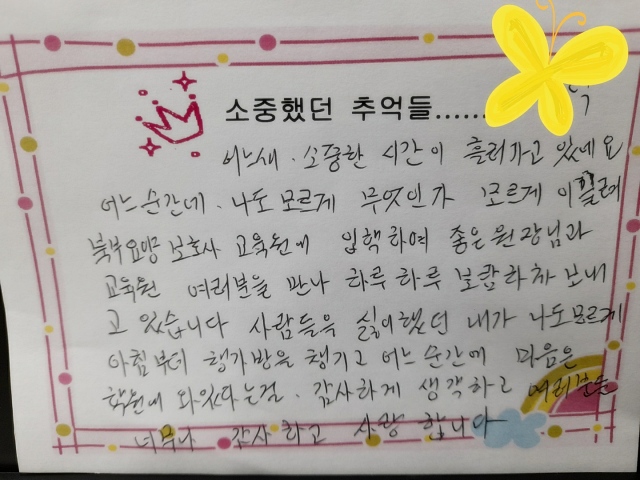 소중했던 추억들......
어느새. 소중한 시간이 흘러가고 있네요
어느순간네. 나도모르게 무엇인가 모르게 이끌려
북부요양보호사 교육원에 입학하여 좋은원장님과
교육원 여러분을 만나 하루하루 보람차차 보내
고 있습니다 사람들을 싫어했던 내가 나도모르게
아침부터 책가방을 챙기고 어느순간에 마음은
학원에 와있다는걸. 감사하게 생각하고 여러분들
너무나 감사하고 사랑 합니다